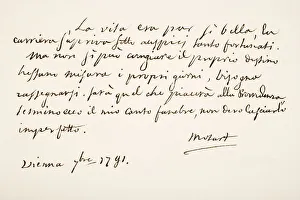 La vita era pur sì bella, la
carriera s'apriva sotto auspicj tanto fortunati.
Ma non si può cangiare il proprio destino
nessuno misura i propri giorni, bisogna
rassegnarsi. sarà quel che piacerà alla Providenza
termino ecco il mio canto funebre, non devo lasciarlo
imperfetto.
Mozart
Vienna 7bre 1791.